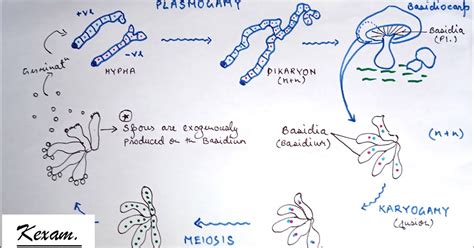 PLASMOGAMY
Basidiocarp
+ve
-ve
Basidia
(Pl.)
Germinatn
HYPHA
DIKARYON
(n+n)
* Spores are exogenously
produced on the Basidium
Basidia
(Basidium)
(n+n)
KARYOGAMY
(fusion)
MEIOSIS
Kexam.